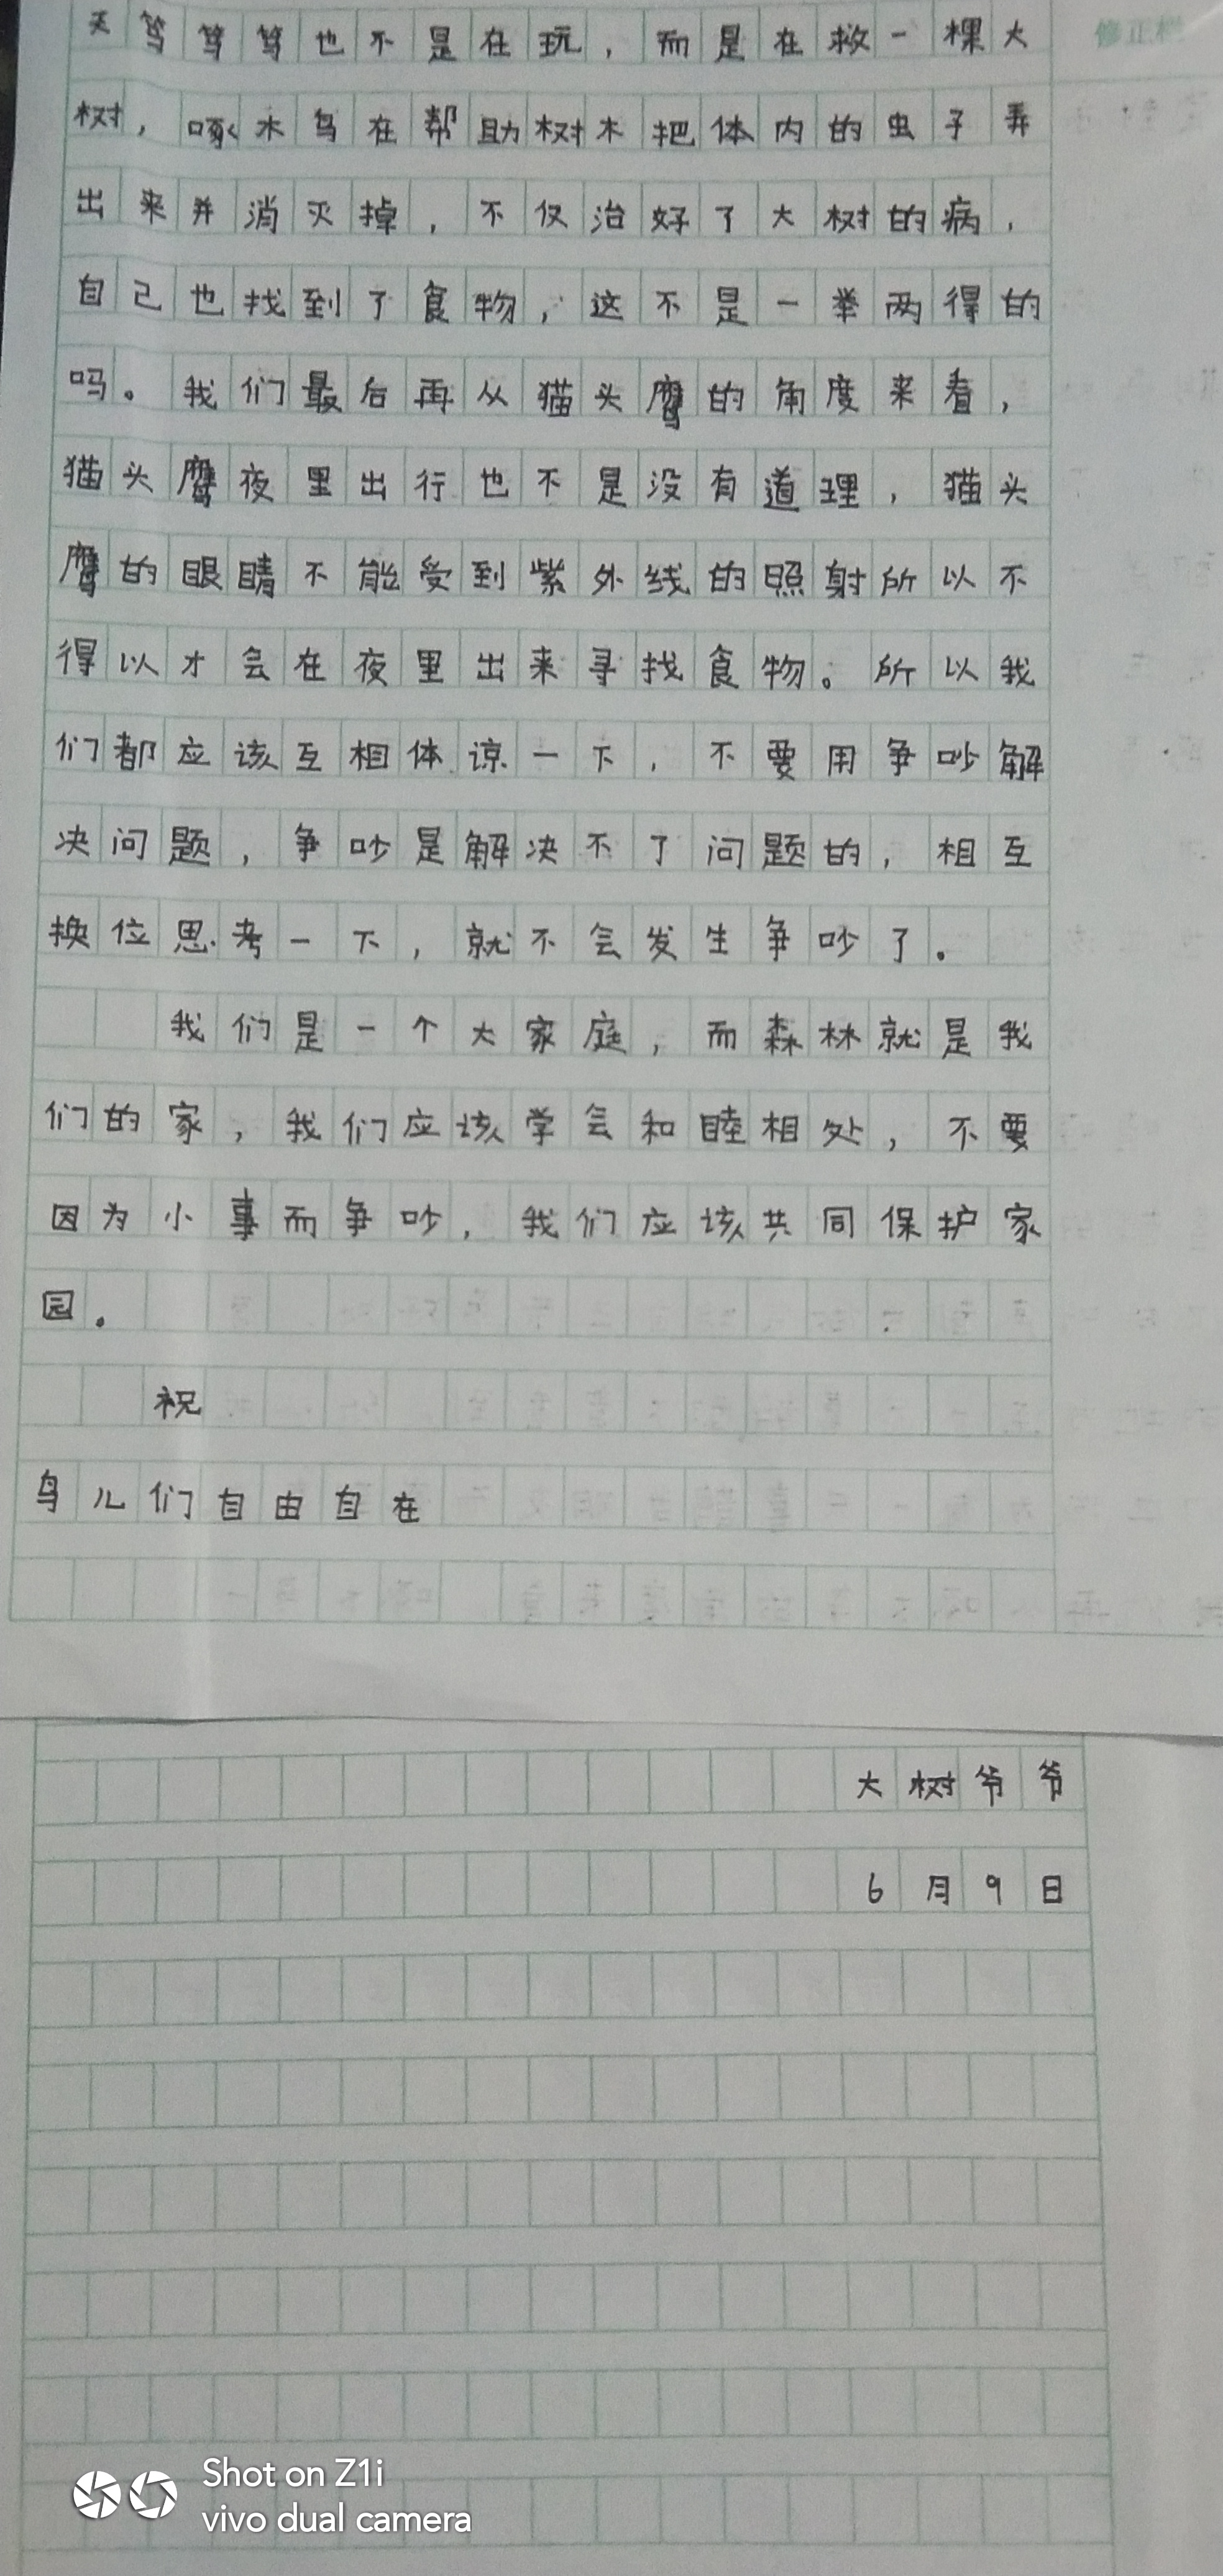 天笃笃笃也不是在玩，而是在救一棵大
修正栏
树，啄木鸟在帮助树木把体内的虫子弄
出来并消灭掉，不仅治好了大树的病，
自己也找到了食物，这不是一举两得的
吗。我们最后再从猫头鹰的角度来看，
猫头鹰夜里出行也不是没有道理，猫头
鹰的眼睛不能受到紫外线的照射所以不
得以才会在夜里出来寻找食物。所以我
们都应该互相体谅一下，不要用争吵解
决问题，争吵是解决不了问题的，相互
换位思考一下，就不会发生争吵了。
我们是一个大家庭，而森林就是我
们的家，我们应该学会和睦相处，不要
因为小事而争吵，我们应该共同保护家
园。
祝
鸟儿们自由自在
大树爷爷
6月9日
Shot on Z1i
vivo dual camera